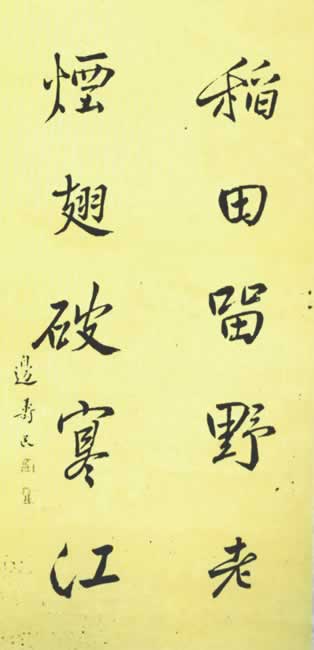 稻田留野老
煙翅破寒江
邊壽民